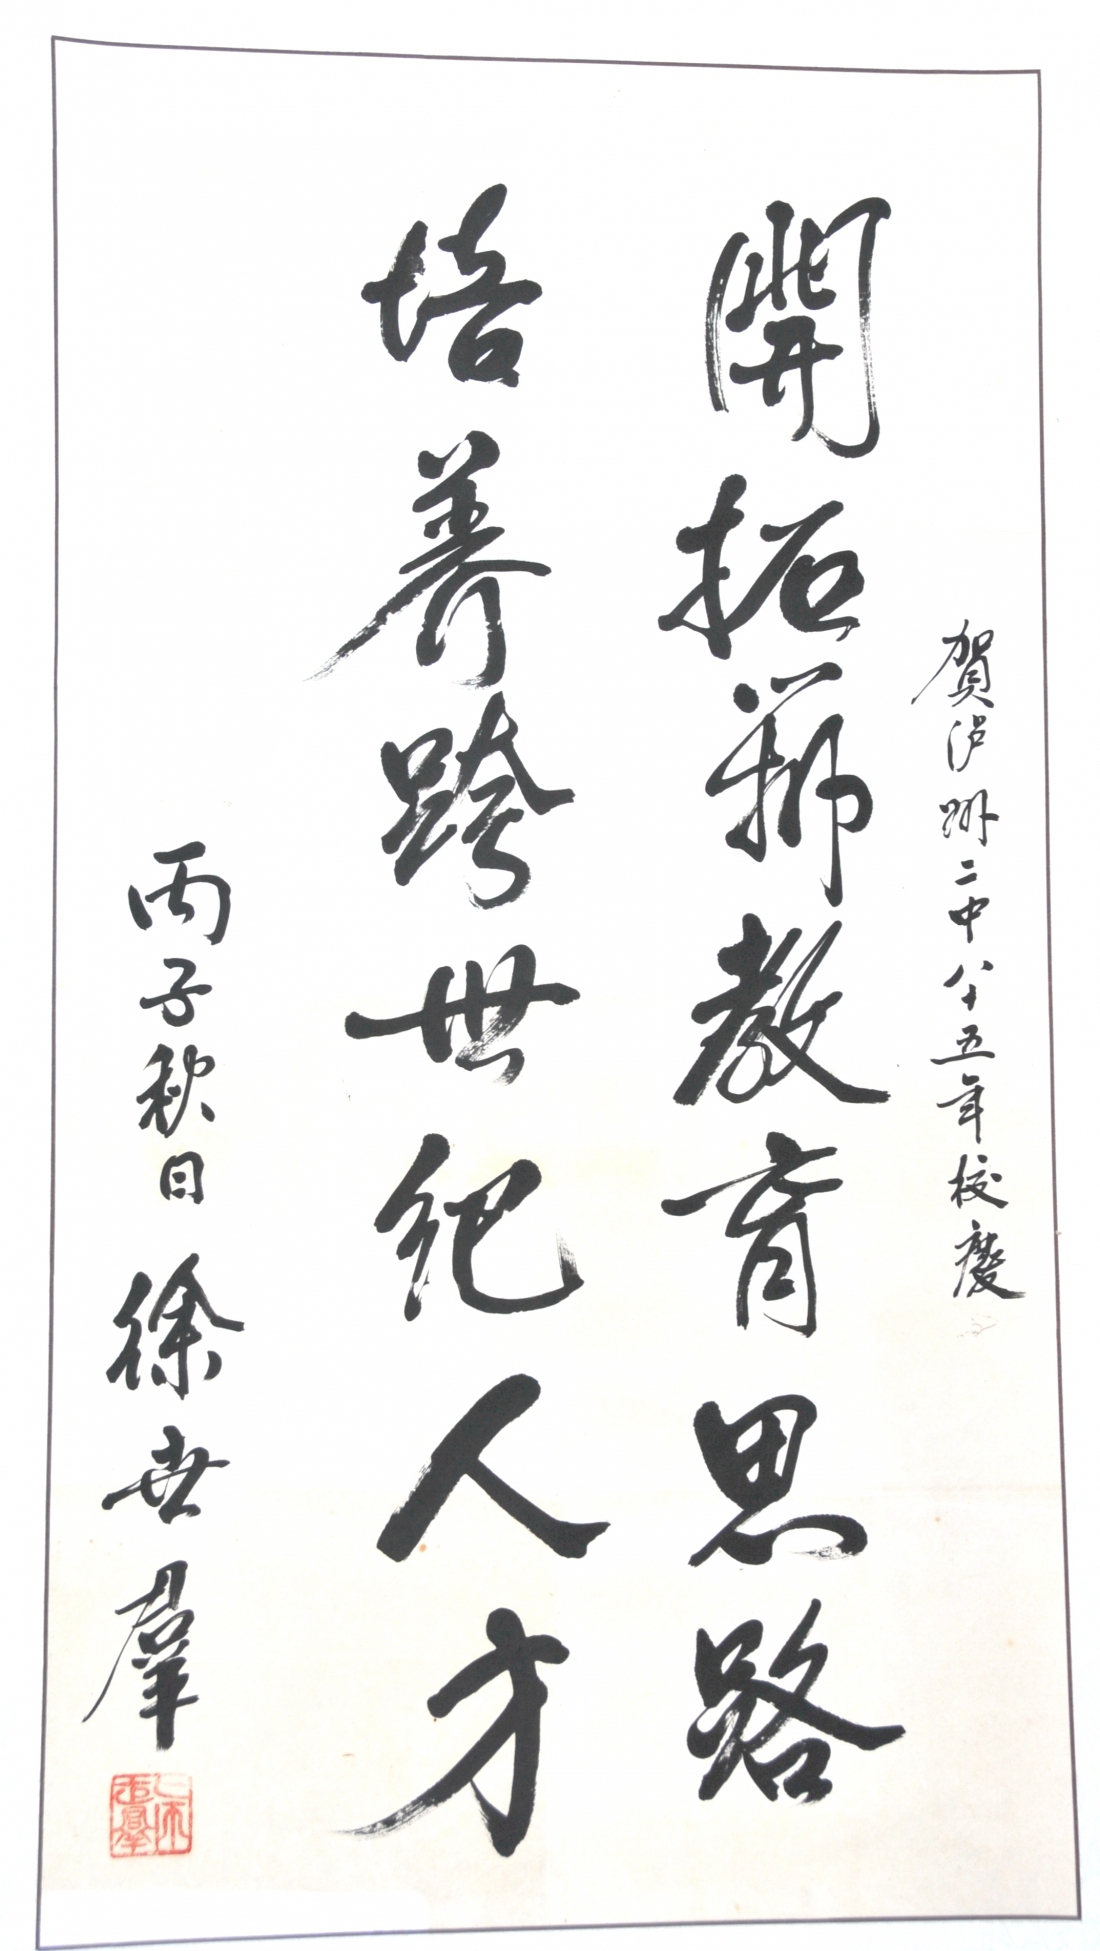 賀泸州二中八十五年校慶
開拓新教育思路
培養跨世纪人才
丙子秋日 徐世群